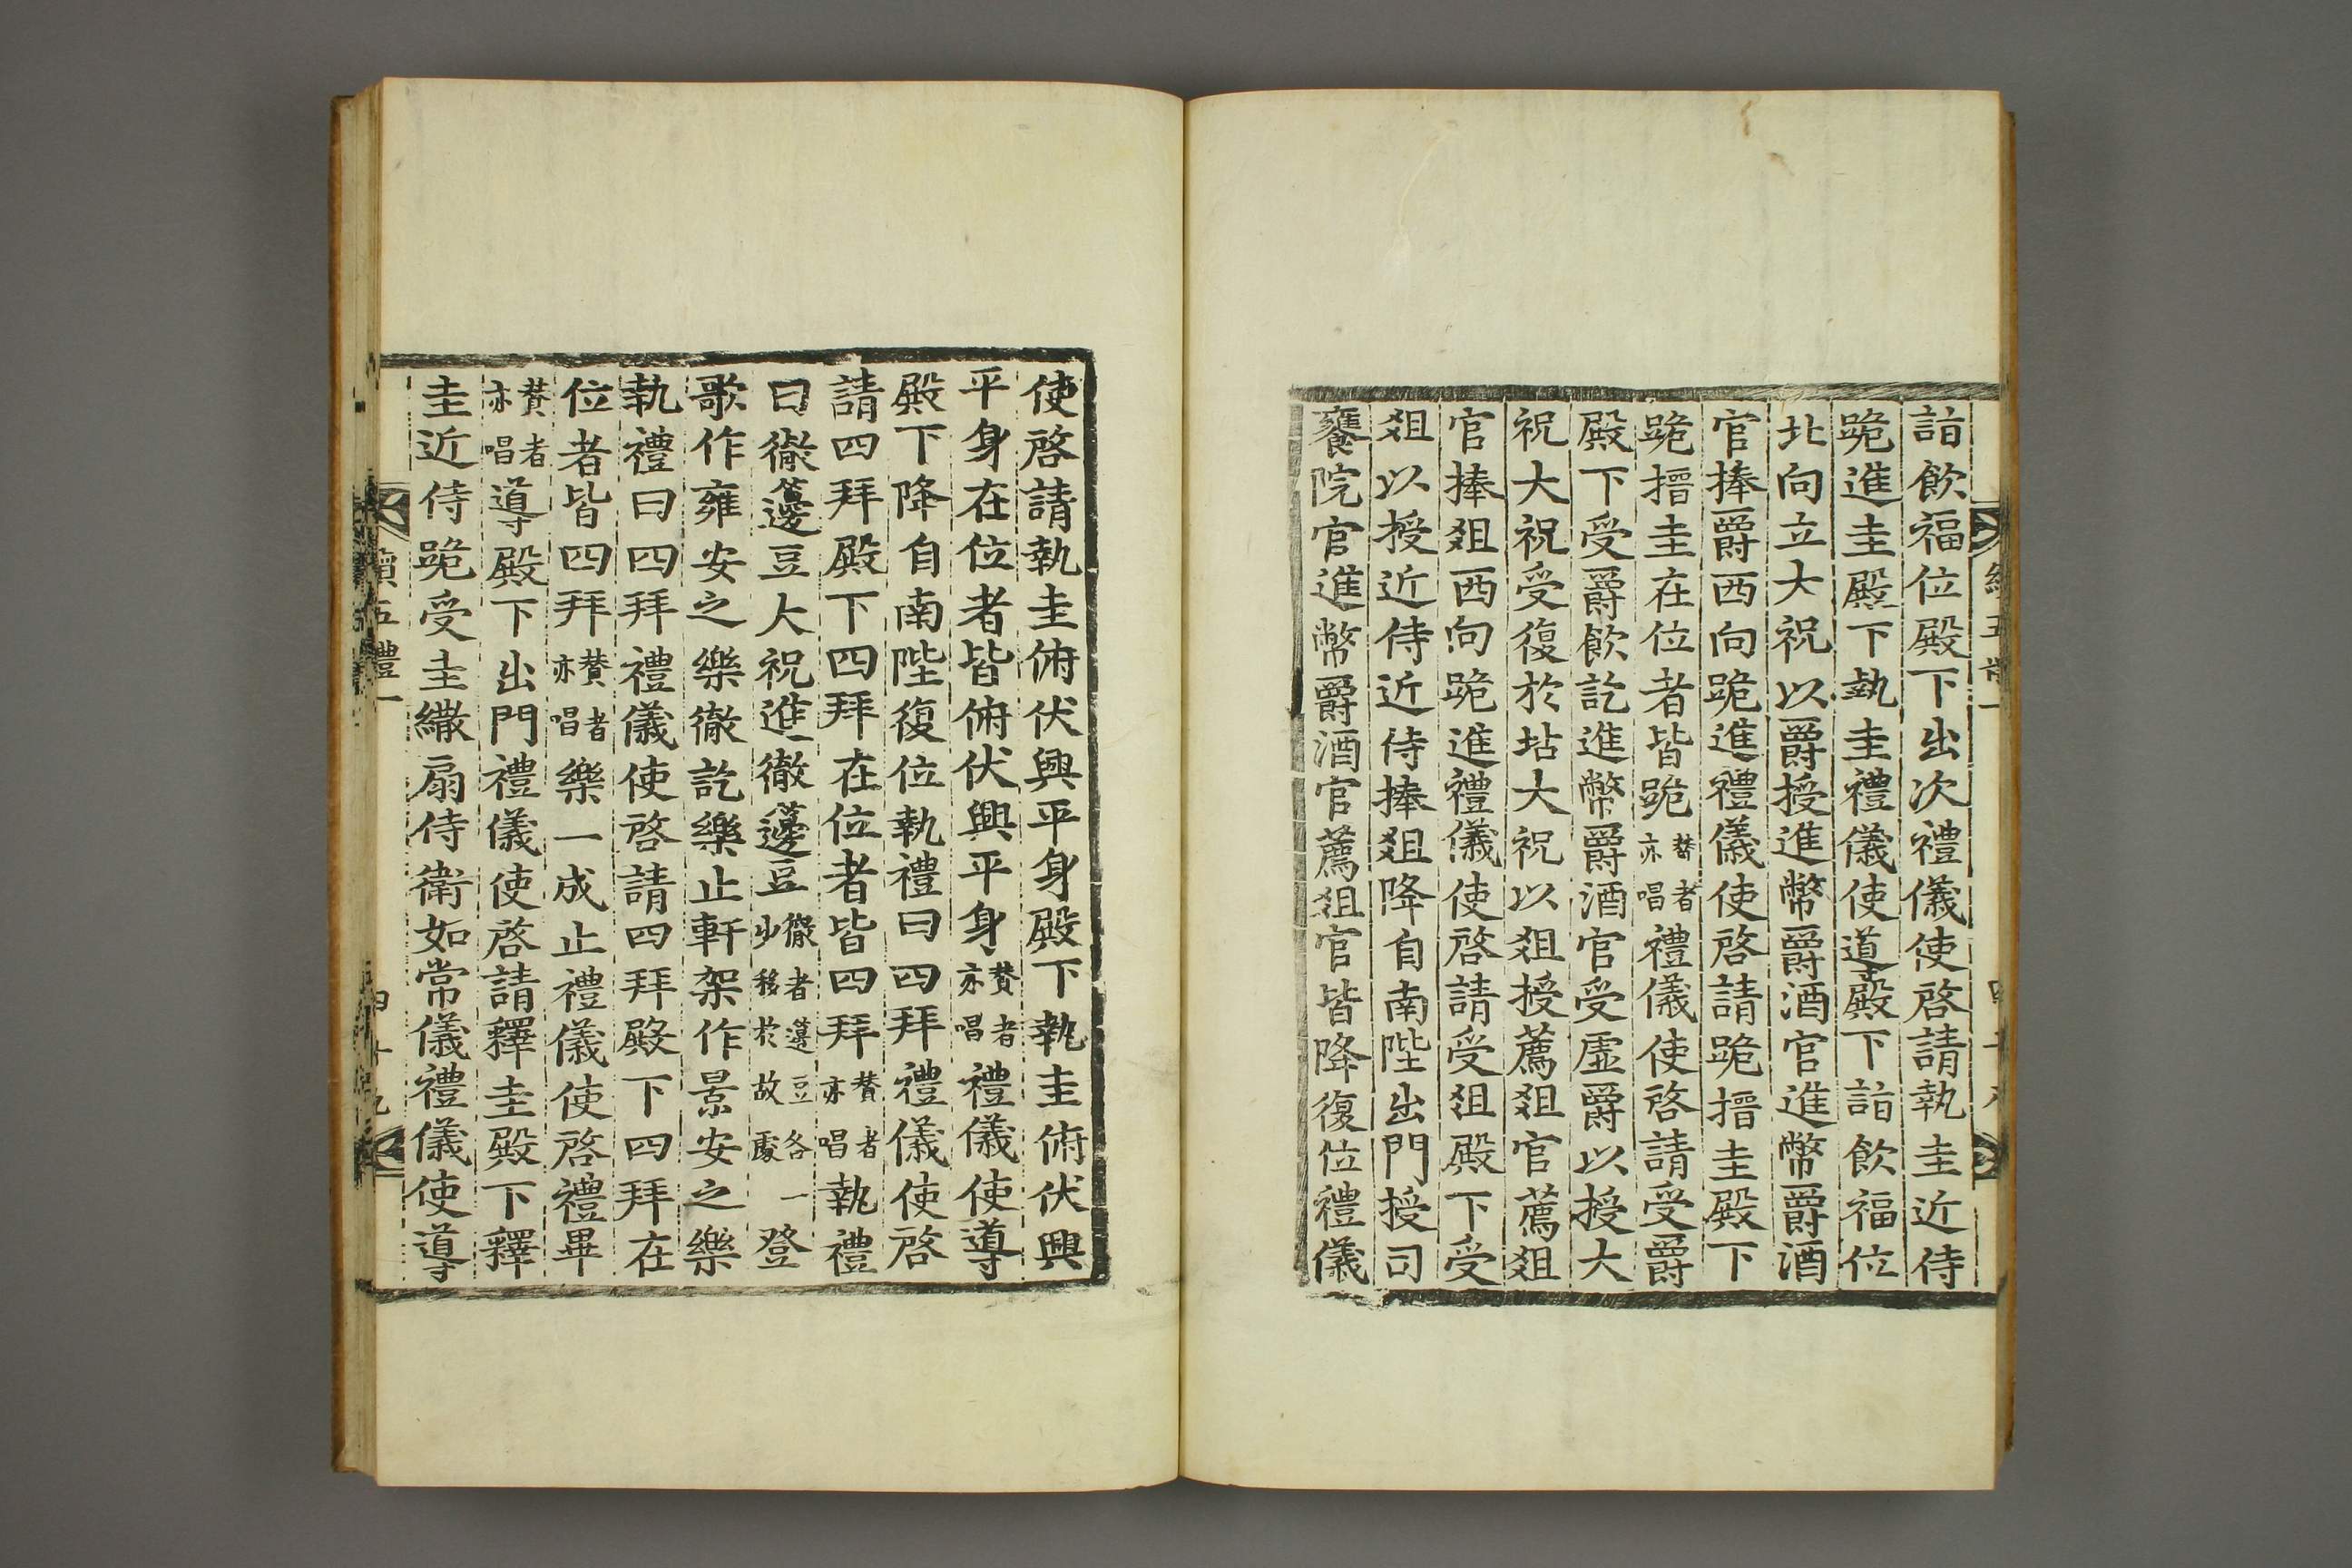 詣飮福位殿下出次禮儀使啓請執圭近侍
跪進圭殿下執圭禮儀使導殿下詣飮福位
北向立大祝以爵授進幣爵酒官進幣爵酒
官捧爵西向跪進禮儀使啓請跪搢圭殿下
跪搢圭在位者皆跪贊者亦唱禮儀使啓請受爵
殿下受爵飮訖進幣爵酒官受虛爵以授大
祝大祝受復於坫大祝以俎授薦俎官薦俎
官捧俎西向跪進禮儀使啓請受俎殿下受
俎以授近侍近侍捧俎降自南陛出門授司
饔院官進幣爵酒官薦俎官皆降復位禮儀
使啓請執圭俯伏興平身殿下執圭俯伏興
平身在位者皆俯伏興平身贊者亦唱禮儀使導
殿下降自南陛復位執禮曰四拜禮儀使啓
請四拜殿下四拜在位者皆四拜贊者亦唱執禮
曰徹籩豆大祝進徹籩豆徹者籩豆各一少移於故處登
歌作雍安之樂徹訖樂止軒架作景安之樂
執禮曰四拜禮儀使啓請四拜殿下四拜在
位者皆四拜贊者亦唱樂一成止禮儀使啓禮畢
贊者亦唱導殿下出門禮儀使啓請釋圭殿下釋
圭近侍跪受圭繖扇侍衛如常儀禮儀使導
續五禮一
四十九